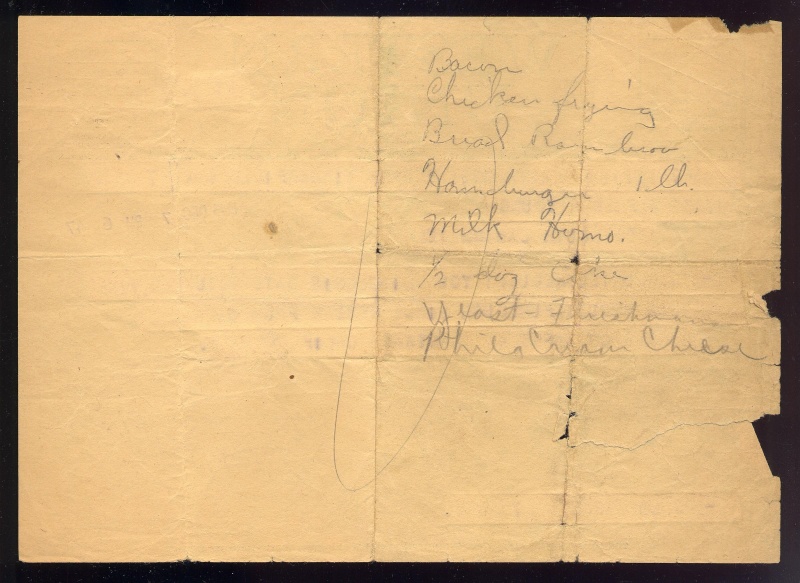 Bacon
Chicken frying
Bread Rainbow
Hamburger 1 lb.
Milk Homo.
1/2 doz Coke
Yeast - Fleishman
Phila Cream Cheese